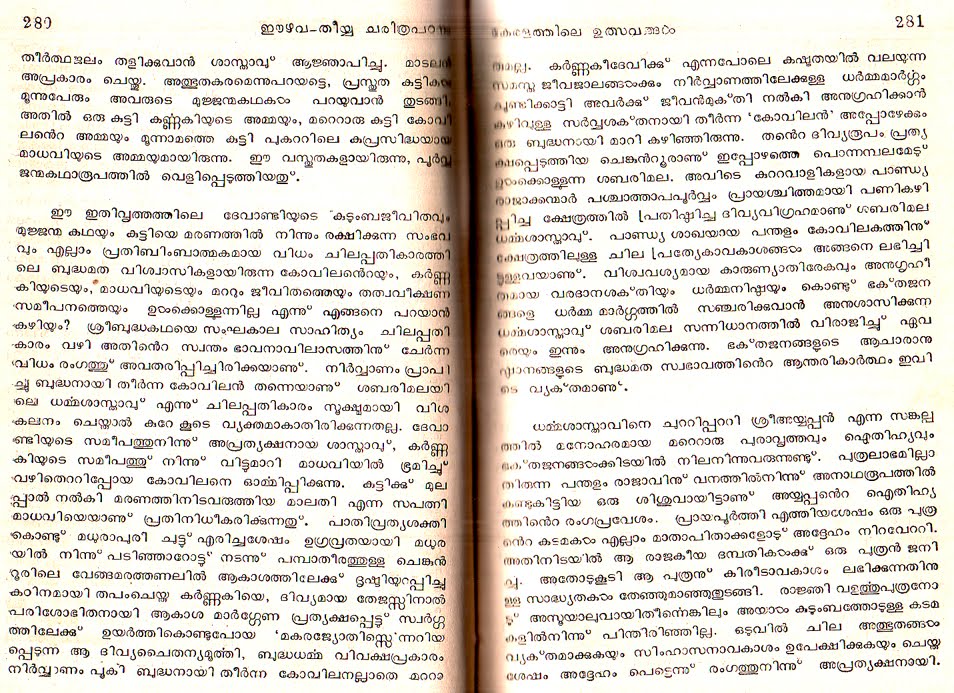 280
ഈഴവ-തീയ്യ ചരിത്രപഠനം
തീർത്ഥജലം തളിക്കുവാൻ ശാസ്താവു് ആജ്ഞാപിച്ചു. മാടലൻ
അപ്രകാരം ചെയ്തു. അത്ഭുതകരമെന്നുപറയട്ടെ, പ്രസ്തുത കുട്ടികൾ
മൂന്നുപേരും അവരുടെ മുജ്ജന്മകഥകൾ പറയുവാൻ തുടങ്ങി.
അതിൽ ഒരു കുട്ടി കണ്ണകിയുടെ അമ്മയും, മറെറാരു കുട്ടി കോവി
ലൻെറ അമ്മയും മൂന്നാമത്തെ കുട്ടി പുകററിലെ കുപ്രസിദ്ധയായ
മാധവിയുടെ അമ്മയുമായിരുന്നു. ഈ വസ്തുതകളായിരുന്നു, പൂർവ്വ
ജന്മകഥാരൂപത്തിൽ വെളിപ്പെടുത്തിയതു്.
ഈ ഇതിവൃത്തത്തിലെ ദേവാണ്ടിയുടെ കുടുംബജീവിതവും
മുജ്ജന്മ കഥയും കുട്ടിയെ മരണത്തിൽ നിന്നും രക്ഷിക്കുന്ന സംഭവ
വും എല്ലാം പ്രതിബിംബാത്മകമായ വിധം ചിലപ്പതികാരത്തി
ലെ ബുദ്ധമത വിശ്വാസികളായിരുന്ന കോവിലൻെറയും, കർണ്ണ
കിയുടെയും, മാധവിയുടെയും മററും ജീവിതത്തെയും തത്വവീക്ഷണ
സമീപനത്തെയും ഉൾക്കൊള്ളുന്നില്ല എന്നു് എങ്ങനെ പറയാൻ
കഴിയും? ശ്രീബുദ്ധകഥയെ സംഘകാല സാഹിത്യം ചിലപ്പതി
കാരം വഴി അതിൻെറ സ്വന്തം ഭാവനാവിലാസത്തിനു് ചേർന്ന
വിധം രംഗത്തു് അവതരിപ്പിച്ചിരിക്കയാണു്. നിർവ്വാണം പ്രാപി
ച്ചു ബുദ്ധനായി തീർന്ന കോവിലൻ തന്നെയാണു് ശബരിമലയി
ലെ ധർമ്മശാസ്താവു് എന്നു് ചിലപ്പതികാരം സൂക്ഷ്മമായി വിശ
കലനം ചെയ്താൽ കുറേ കൂടെ വ്യക്തമാകാതിരിക്കുന്നതല്ല. ദേവാ
ണ്ടിയുടെ സമീപത്തുനിന്നു് അപ്രത്യക്ഷനായ ശാസ്താവു്, കർണ്ണ
കിയുടെ സമീപത്തു് നിന്നു് വിട്ടുമാറി മാധവിയിൽ ഭ്രമിച്ചു്
വഴിതെററിപ്പോയ കോവിലനെ ഓർമ്മിപ്പിക്കുന്നു. കുട്ടിക്കു് മുല
പ്പാൽ നൽകി മരണത്തിനിടവരുത്തിയ മാലതി എന്ന സപത്നി
മാധവിയെയാണു് പ്രതിനിധീകരിക്കുന്നതു്. പാതിവ്രത്യശക്തി
കൊണ്ടു് മധുരാപുരി ചുട്ടു് എരിച്ചശേഷം ഉഗ്രവ്രതയായി മധുര
യിൽ നിന്നു് പടിഞ്ഞാറോട്ടു് നടന്നു് പമ്പാതീരത്തുള്ള ചെങ്കൻ
റൂരിലെ വേങ്ങമരത്തണലിൽ ആകാശത്തിലേക്കു് ദൃഷ്ടിയുറപ്പിച്ചു
കഠിനമായി തപംചെയ്തു കർണ്ണകിയെ, ദിവ്യമായ തേജസ്സിനാൽ
പരിശോഭിതനായി ആകാശ മാർഗ്ഗേണ പ്രത്യക്ഷപ്പെട്ടു് സ്വർഗ്ഗ
ത്തിലേക്കു് ഉയർത്തികൊണ്ടുപോയ 'മകരജ്യോതിസ്സെ'ന്നറിയ
പ്പെടുന്ന ആ ദിവ്യചൈതന്യമൂർത്തി, ബുദ്ധധർമ്മ വിവക്ഷപ്രകാരം
നിർവ്വാണം പൂകി ബുദ്ധനായി തീർന്ന കോവിലനല്ലാതെ മററാ
കേരളത്തിലെ ഉത്സവങ്ങൾ
281
കർണ്ണകീദേവിക്കു് എന്നപോലെ കഷ്ടതയിൽ വലയുന്ന
സമസ്ത ജീവജാലങ്ങൾക്കും നിർവ്വാണത്തിലേക്കുള്ള ധർമ്മമാർഗ്ഗം
ചൂണ്ടിക്കാട്ടി അവർക്കു് ജീവൻമുക്തി നൽകി അനുഗ്രഹിക്കാൻ
കഴിവുള്ള സർവ്വശക്തനായി തീർന്ന 'കോവിലൻ' അപ്പോഴേക്കും
ഒരു ബുദ്ധനായി മാറി കഴിഞ്ഞിരുന്നു. തൻെറ ദിവ്യരൂപം പ്രത്യ
ക്ഷപ്പെടുത്തിയ ചെങ്കുൻറൂരാണു് ഇപ്പോഴത്തെ പൊന്നമ്പലമേടു്
ഉൾക്കൊള്ളുന്ന ശബരിമല. അവിടെ കുററവാളികളായ പാണ്ഡ്യ
രാജാക്കന്മാർ പശ്ചാത്താപപൂർവ്വം പ്രായശ്ചിത്തമായി പണികഴി
പ്പിച്ച ക്ഷേത്രത്തിൽ പ്രതിഷ്ഠിച്ച ദിവ്യവിഗ്രഹമാണു് ശബരിമല
ധർമ്മശാസ്താവു്. പാണ്ഡ്യ ശാഖയായ പന്തളം കോവിലകത്തിനു്
ക്ഷേത്രത്തിലുള്ള ചില പ്രത്യേകാവകാശങ്ങൾ അങ്ങനെ ലഭിച്ചി
ട്ടുള്ളവയാണു്. വിശ്വവശ്യമായ കാരുണ്യാതിരേകവും അനുഗൃഹീ
തമായ വരദാനശക്തിയും ധർമ്മനിഷ്ഠയും കൊണ്ടു് ഭക്തജന
ങ്ങളെ ധർമ്മ മാർഗ്ഗത്തിൽ സഞ്ചരിക്കുവാൻ അനുശാസിക്കുന്ന
ധർമ്മശാസ്താവു് ശബരിമല സന്നിധാനത്തിൽ വിരാജിച്ചു് ഏവ
രെയും ഇന്നും അനുഗ്രഹിക്കുന്നു. ഭക്തജനങ്ങളുടെ ആചാരാനു
ഷ്ഠാനങ്ങളുടെ ബുദ്ധമത സ്വഭാവത്തിൻെറ ആന്തരികാർത്ഥം ഇവി
ടെ വ്യക്തമാണു്.
ധർമ്മശാസ്താവിനെ ചുററിപ്പററി ശ്രീഅയ്യപ്പൻ എന്ന സങ്കല്പ
ത്തിൽ മനോഹരമായ മറെറാരു പുരാവൃത്തവും ഐതിഹ്യവും
ഭക്തജനങ്ങൾക്കിടയിൽ നിലനിന്നുവരുന്നുണ്ടു്. പുത്രലാഭമില്ലാ
തിരുന്ന പന്തളം രാജാവിനു് വനത്തിൽനിന്നു് അനാഥരൂപത്തിൽ
കണ്ടുകിട്ടിയ ഒരു ശിശുവായിട്ടാണു് അയ്യപ്പൻെറ ഐതിഹ്യ
ത്തിൻെറ രംഗപ്രവേശം. പ്രായപൂർത്തി എത്തിയശേഷം ഒരു പുത്ര
ൻെറ കടമകൾ എല്ലാം മാതാപിതാക്കളോടു് അദ്ദേഹം നിറവേററി.
അതിനിടയിൽ ആ രാജകീയ ദമ്പതികൾക്കു് ഒരു പുത്രൻ ജനി
ച്ചു. അതോടുകൂടി ആ പുത്രനു് കിരീടാവകാശം ലഭിക്കുന്നതിനു
ള്ള സാദ്ധ്യതകൾ തേഞ്ഞുമാഞ്ഞുതുടങ്ങി. രാജ്ഞി വളർത്തുപുത്രനോ
ടു് അസൂയാലുവായിതീർന്നെങ്കിലും അയാൾ കുടുംബത്തോടുള്ള കടമ
കളിൽനിന്നു് പിന്തിരിഞ്ഞില്ല. ഒടുവിൽ ചില അത്ഭുതങ്ങൾ
വ്യക്തമാക്കുകയും സിംഹാസനാവകാശം ഉപേക്ഷിക്കുകയും ചെയ്തു
ശേഷം അദ്ദേഹം പെട്ടെന്നു് രംഗത്തുനിന്നു് അപ്രത്യക്ഷനായി.